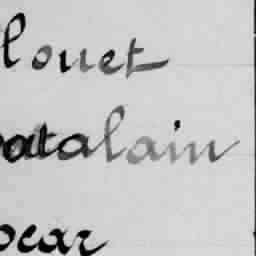 louet
atalain
ocar